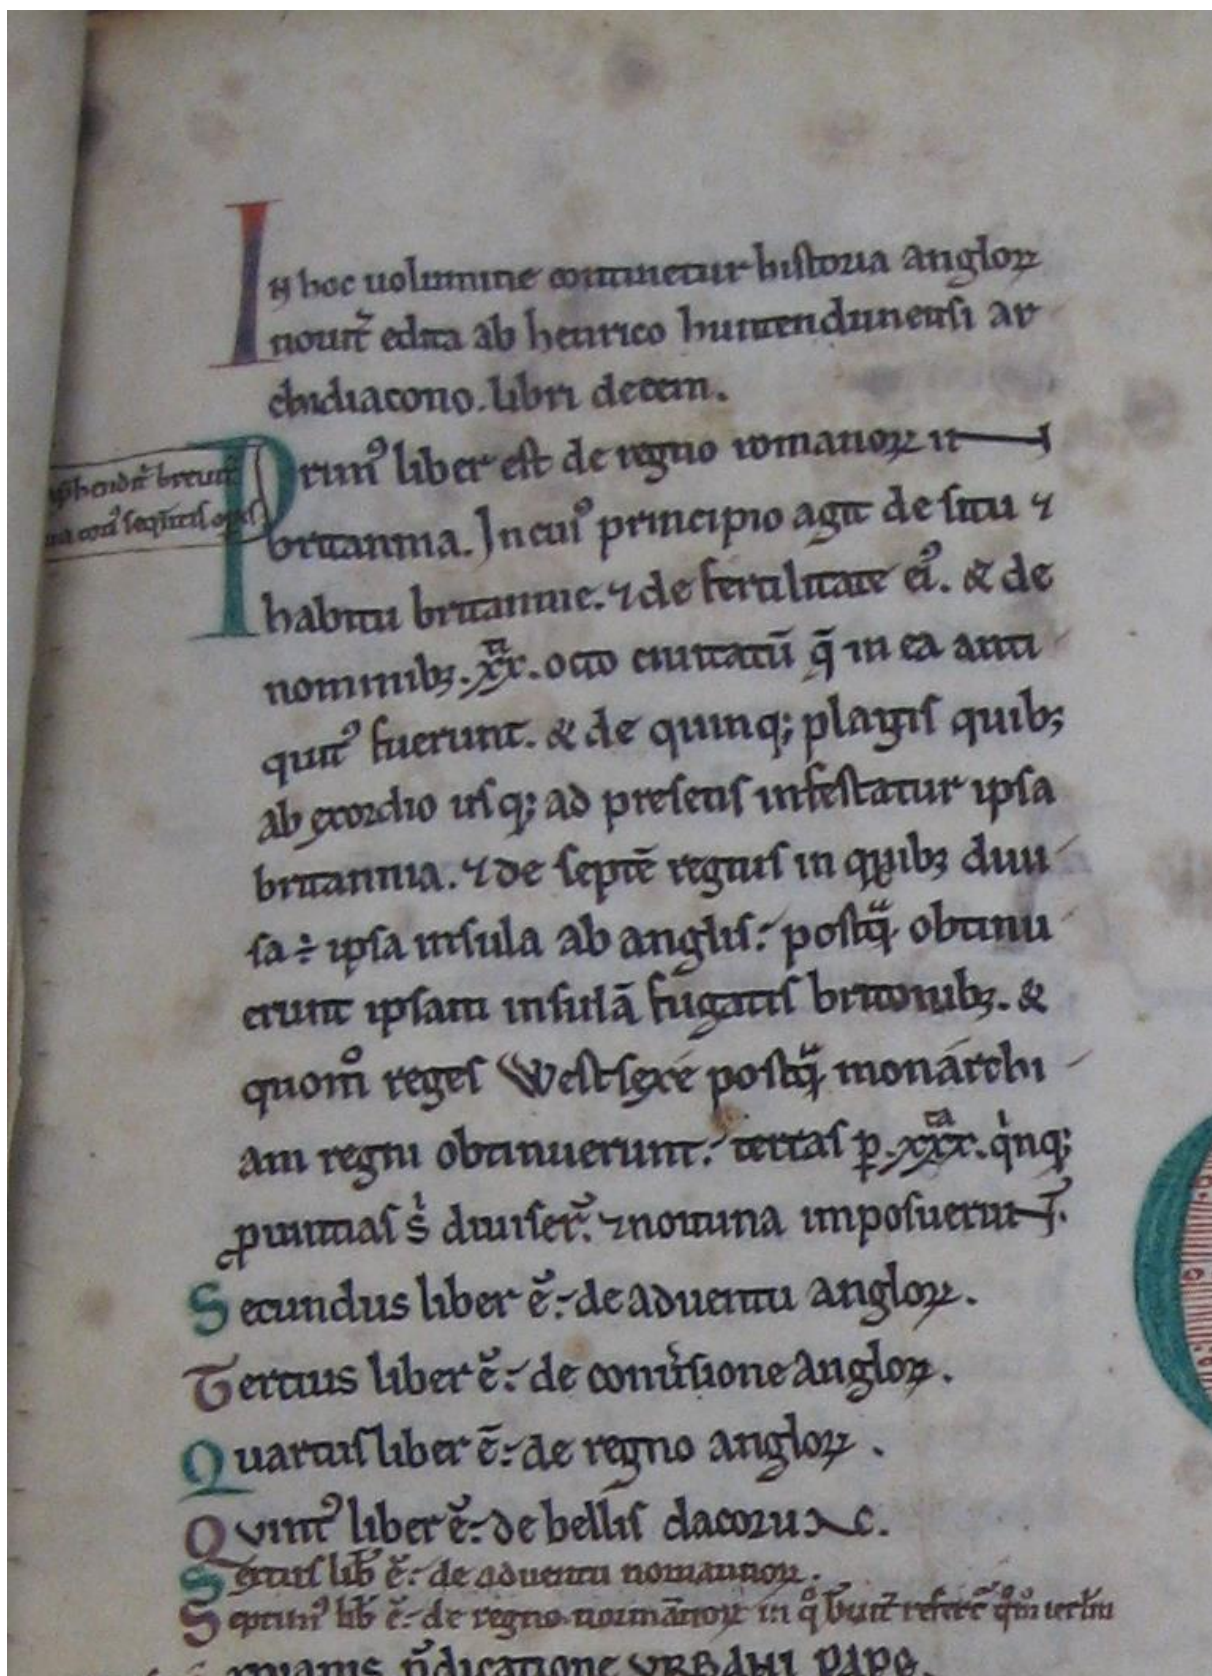 In hoc uolumine continetur historia angloꝝ
nouit᷑ edita ab henrico huntendunensi ar
chidiacono. libri decem.
Primꝰ liber est de regno romanoꝝ in
britannia. In cuiꝰ principio agit de situ ⁊
habitu britannie. ⁊ de fertilitate eiꝰ. & de
nominibꝫ. xxͭͥ. octo ciuitatū q̄ in ea anti
quitꝰ fuerunt. & de quinq; plagis quibꝫ
ab exordio usq; ad presens infestatur ipsa
britannia. ⁊ de septē regnis in quibꝫ diui
sa ÷ ipsa insula ab anglis. postqͣ̄ obtinu
erunt ipsam insulā fugatis britonibꝫ. &
quom̊ reges Westsexe postqͣ̄ monarchi
am regni obtinuerunt. terras ꝑ. xxxͭͣ. qͥnq;
ꝓuincias sͥ diuiser̄. ⁊ nomina imposuerunt.
Secundus liber ē. de aduentu angloꝝ.
Tertius liber ē. de conu̾sione angloꝝ.
Quartus liber ē. de regno angloꝝ.
Quintꝰ liber ē. de bellis dacorum.
Sextus lib̄ ē. de aduentu normannoꝝ.
Septimꝰ lib̄ ē. de regno normannoꝝ in qͦ
p̄dicatione URBANI PAPE.